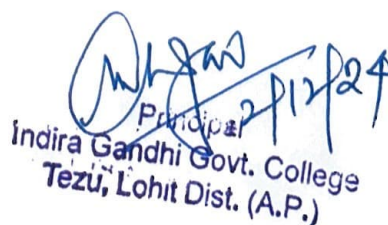 2/12/24
Principal
Indira Gandhi Govt. College
Tezu, Lohit Dist. (A.P.)